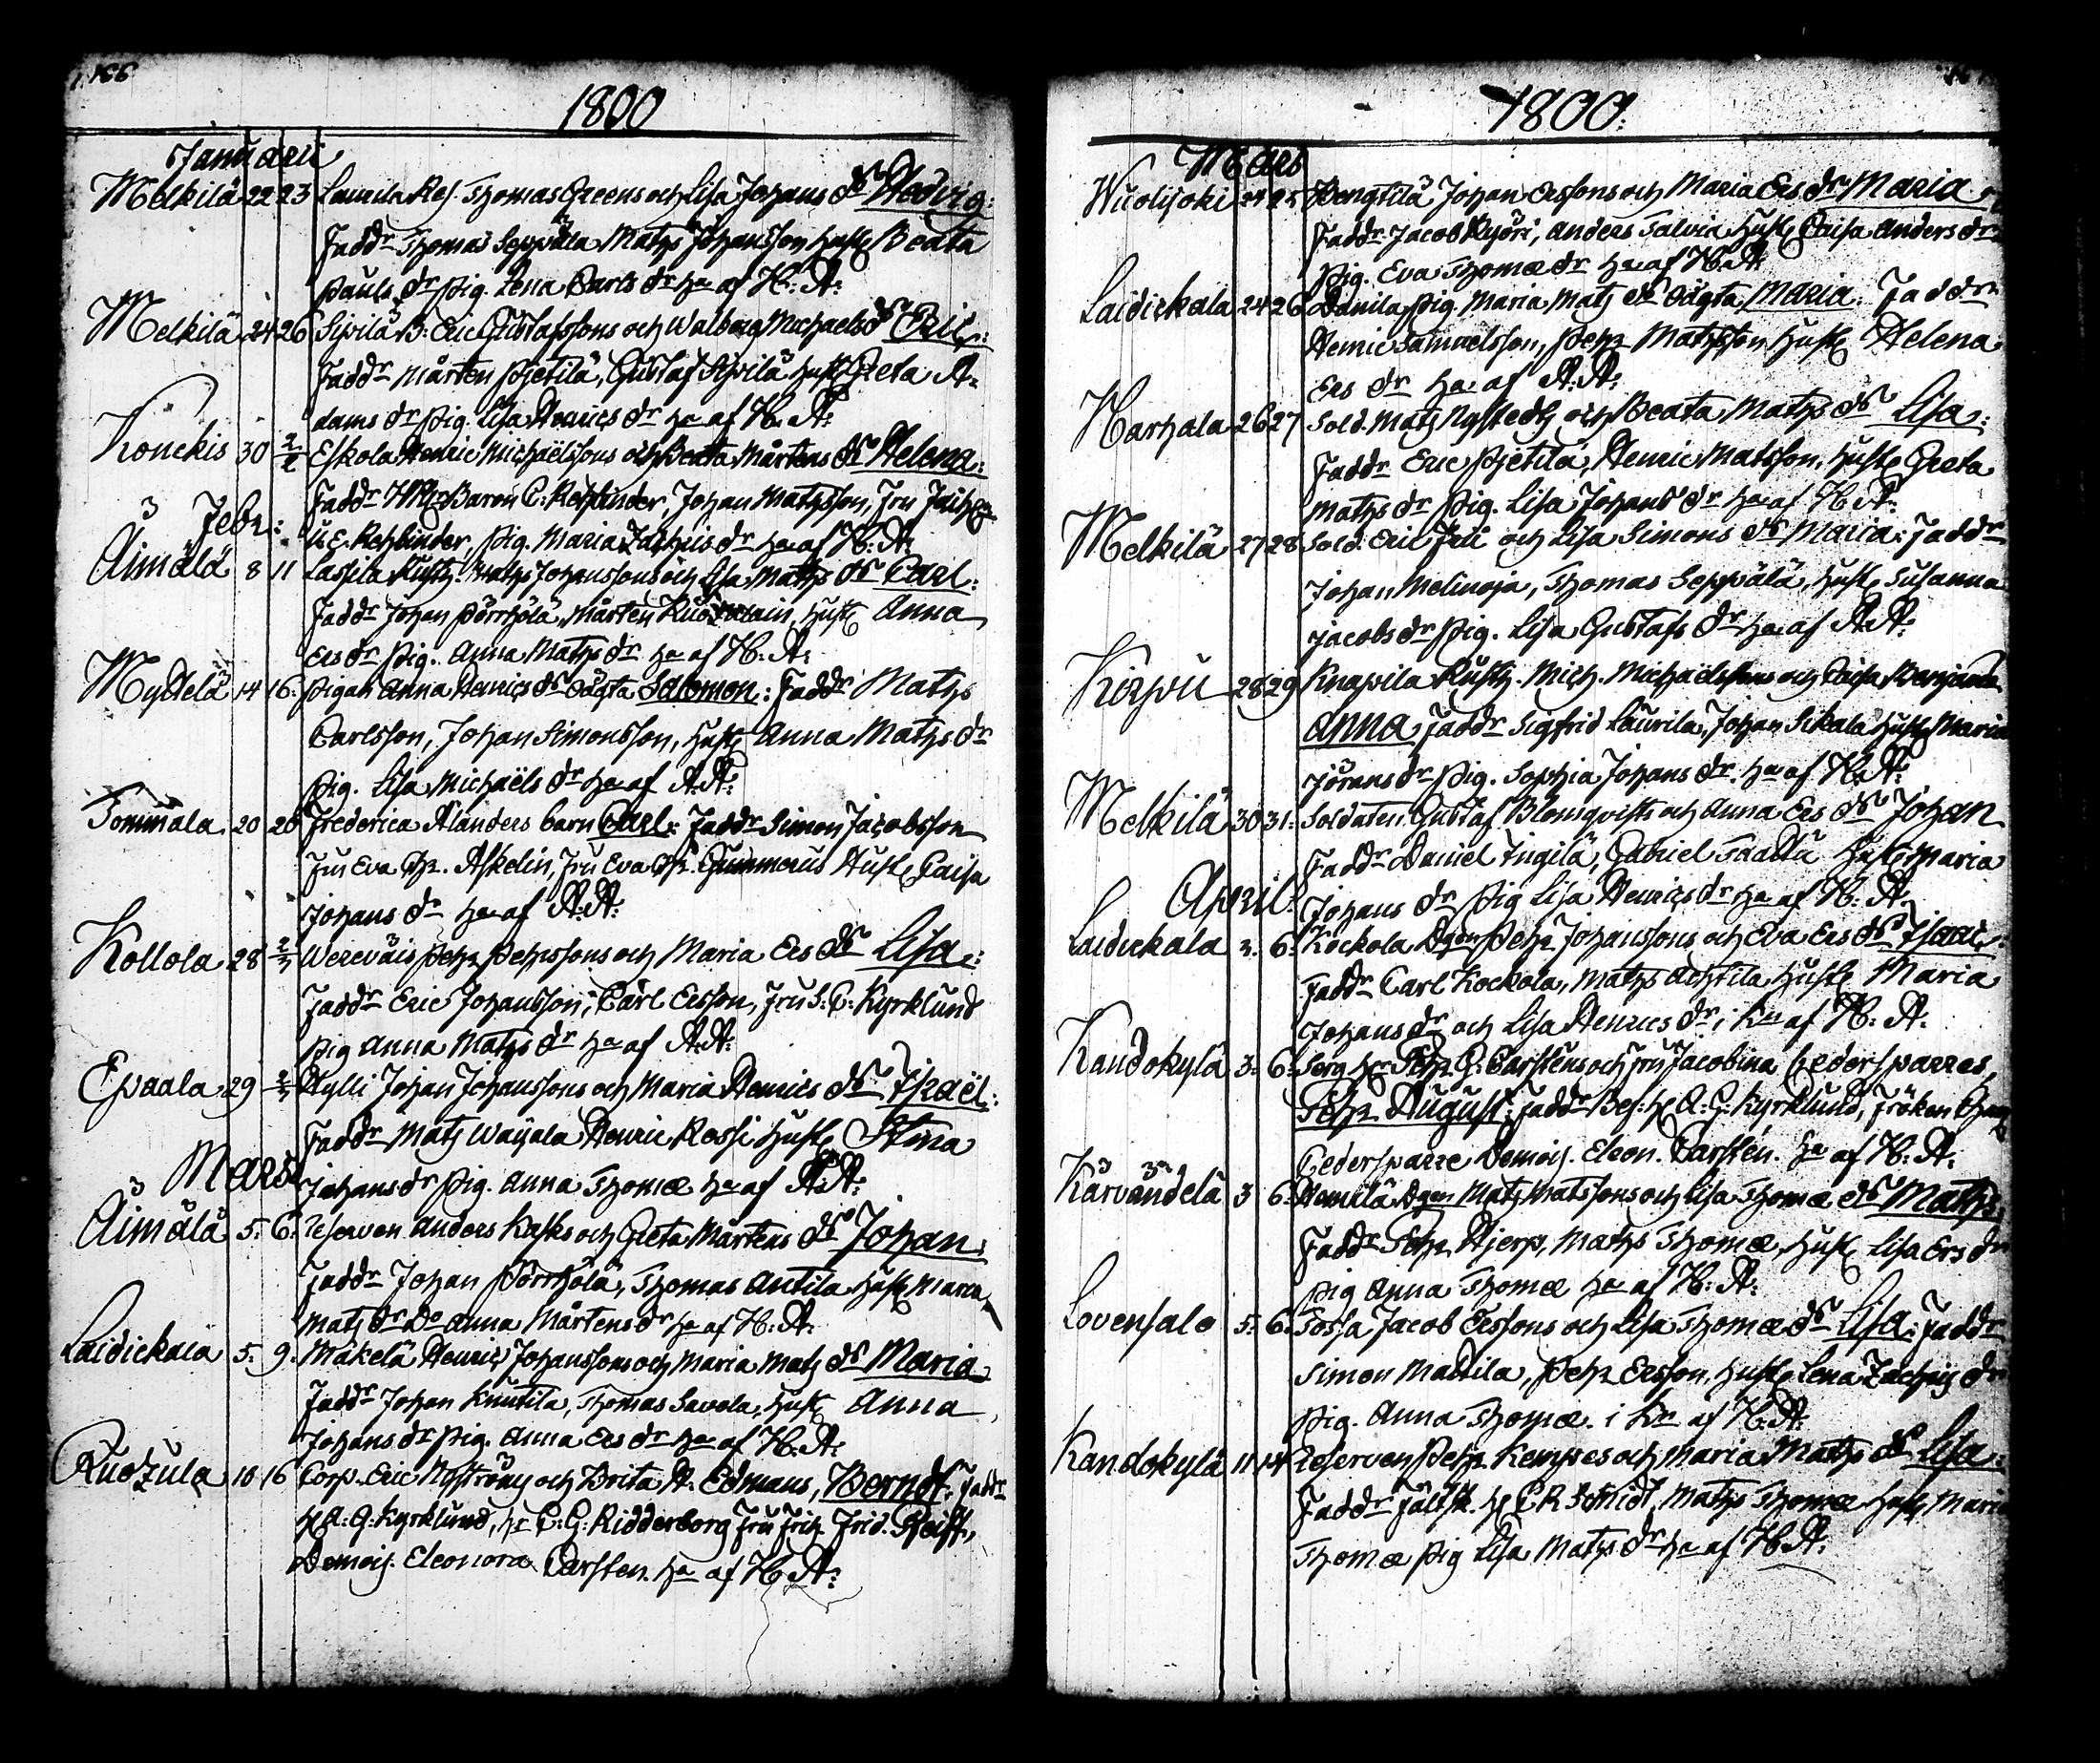 166
1800
Januarii
Melkilä 22 23 Laurila Res. Thomas Greens och Lisa Johans dr Hedvig:
Faddr Thomas Seppälä Maths Johansson Hust. Beata
Pauls dr Pig. Lena Carls dr ha af H: A:
Melkilä 24 26 Sipilä B. Eric Gustafssons och Walborg Michaels dr Eric:
Faddr Mårten Pjetilä, Gustaf Sipilä Hust. Greta A-
dams dr Pig. Lisa Henrics dr ha af H. A:
Konckis 30 2/2 Eskola Henric Michaëlssons och Beata Mårtens dr Helena:
Faddr Baron C: Rehbinder, Johan Mathsson, Fru
U. E. Rehbinder, Pig. Maria Zachris dr ha af H: A:
Febr:
Äimälä 8 11 Lassila Rusth. Maths Johanssons och Lisa Maths dr Carl:
Faddr Johan Pörrhölä, Mårten Hust. Anna
Ers dr Pig. Anna Maths dr ha af H. A:
14 16. Pigan Anna Henrics dr oägta Salomon: Faddr Maths
Carlsson, Johan Simonsson, Hust. Anna Maths dr
Pig. Lisa Michaëls dr ha af A: A:
Tommola 20 20 Frederica Ålanders barn Carl: Faddr Simon Jacobsson
Fru Eva Askelin, Fru Eva Gummerus Hust. Caisa
Johans dr ha af A: A:
Kollola 28 2/3 Wereväis Pehr Pehrssons och Maria Ers dr Lisa:
Faddr Eric Johansson, Carl Ersson, Fru S: C: Kyrklund
Pig Anna Maths dr ha af A: A:
Epaala 29 2/3 Hylli Johan Johanssons och Maria Henrics dr Israël:
Faddr Mats Wajala Henric Rossi Hust. Stina
Johans dr Pig. Anna Thomæ ha af A: A:
Mars
Äimälä 5. 6. Reserven Anders Kasks och Greta Mårtens dr Johan:
Faddr Johan Pörrhölä, Thomas Antila Hust. Maria
Mats dr Do Anna Mårtens dr ha af H: A:
Laidickala 5. 9. Mäkelä Henrics Johanssons och Maria Mats dr Maria
Faddr Johan Knutila, Thomas Savola, Hust. Anna
Johans dr Pig. Anna Ers dr ha af H. A:
Kuozula 10 16 Corp. Eric Nyströms och Brita A. Edmans, Berndt: Faddr
H. A: G: Kyrklund, hr C: G: Ridderborg Fru Frid.
Demois. Eleonora Carsten. ha af H. A:
1800:
Mars
Wuolijoki 24 25 Pengtilä Johan Erssons och Maria Ers dr Maria
Faddr Jacob Kyöri, Anders Salvia Hust. Caisa Anders dr
Pig. Eva Thomæ dr ha af H. A:
Laidickala 24 26 Danila Pig. Maria Mats dr oägta Maria. Faddr
Henric Samuelsson, Pehr Mathsson Hust. Helena
Ers dr ha af A: A:
Harhala 26 27 Sold. Mats Nystedts och Beata Maths dr Lisa:
Faddr Eric Pjetilä, Henric Matsson, Hust. Greta
Maths dr Pig. Lisa Johans dr ha af H. A:
Melkilä 27 28 Sold. Eric och Lisa Simons dr Maria: Faddr
Johan Melinoja, Thomas Seppälä, Hust. Susanna
Jacobs dr Pig. Lisa Gustafs dr ha af A: A:
Kirpu 28 29 Knapila Rusth. Mich. Michaëlssons och Caisa
Anna, Faddr Sigfrid Laurila, Johan Sikala Hust. Maria
Jörans dr Pig. Sophia Johans dr. ha af H. A:
Melkilä 30 31: Soldaten Gustaf Blomqvists och Anna Ers dr Johan
Faddr Daniel Ingilä, Gabriel Hust. Maria
Johans dr Pig Lisa Henrics dr ha af H. A:
April:
Laidickala 3. 6. Kockola Dgen Pehr Johanssons och Eva Ers dr Isaac:
Faddr Carl Kockola, Maths Achtila Hust. Maria
Johans dr och Lisa Henrics dr i Kn af H: A:
Kandokylä 3. 6. Serg. hr Pehr G: Carstens och Fru Jacobina Cedersparres,
Pehr August: Faddr Bef. H. A: G: Kyrklund, Fröken
Cedersparre Demois. Eleon. Carsten. ha af H: A:
Kärvändelä 3 6 Dgen Mats Matssons och Lisa Thomæ dr Maths:
Faddr Pehr Hjerp, Maths Thomæ, Hust. Lisa Ers dr
Pig Anna Thomæ ha af H: A:
Lovensalo 5. 6. Sossa Jacob Erssons och Lisa Thomæ dr Lisa: Faddr
Simon Mattila, Pehr Ersson, Hust. Lena Zachris dr
Pig. Anna Thomæ. i Kn af H. A:
Kandokylä 11 14 Reserven Pehr Kempes och Maria Maths dr Lisa:
Faddr Fältsk. H. C. R. Schmidt, Maths Thomæ Hust. Maria
Thomæ Pig Lisa Maths dr ha af H. A: